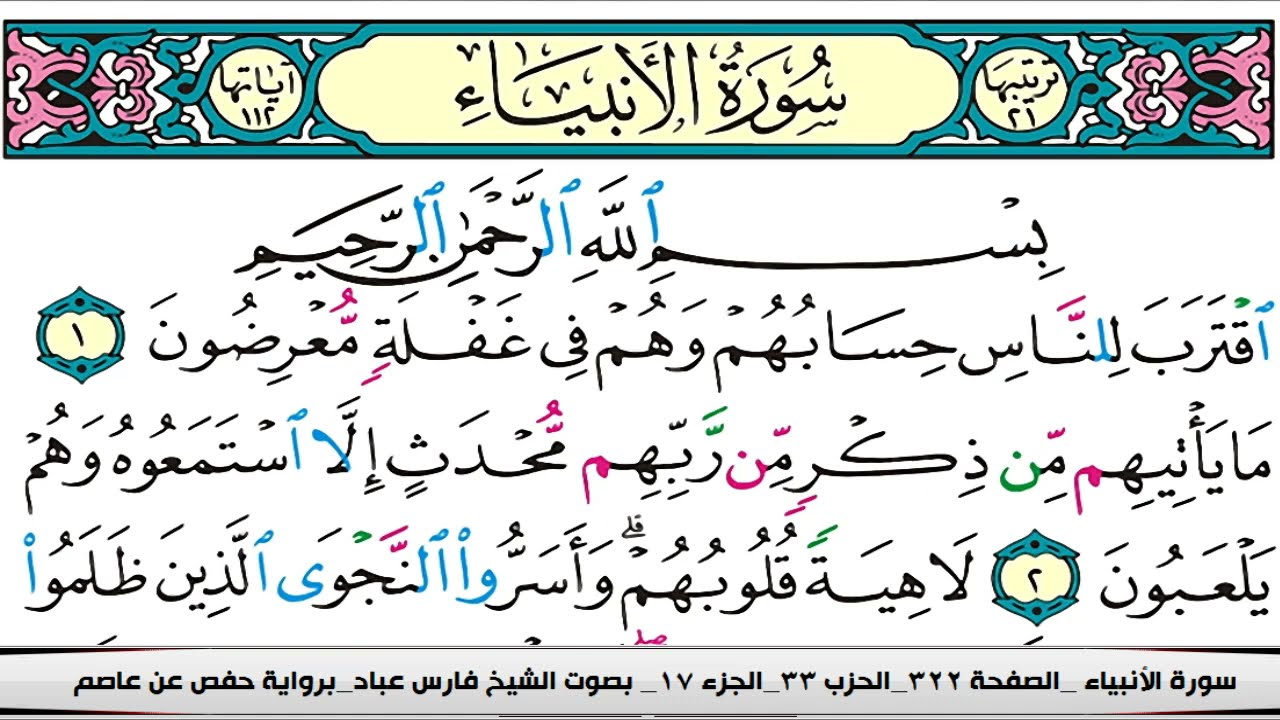 ترتيبها ٢١
سُورَةُ الأَنبِيَاءِ
آيَاتها ١١٢
بِسْمِ ٱللَّهِ ٱلرَّحْمَٰنِ ٱلرَّحِيمِ
ٱقْتَرَبَ لِلنَّاسِ حِسَابُهُمْ وَهُمْ فِى غَفْلَةٍ مُّعْرِضُونَ ١
مَا يَأْتِيهِم مِّن ذِكْرٍ مِّن رَّبِّهِم مُّحْدَثٍ إِلَّا ٱسْتَمَعُوهُ وَهُمْ
يَلْعَبُونَ ٢ لَاهِيَةً قُلُوبُهُمْ ۗ وَأَسَرُّوا۟ ٱلنَّجْوَى ٱلَّذِينَ ظَلَمُوا۟
سورة الأنبياء _الصفحة ٣٢٢_الحزب ٣٣_الجزء ١٧_ بصوت الشيخ فارس عباد_برواية حفص عن عاصم